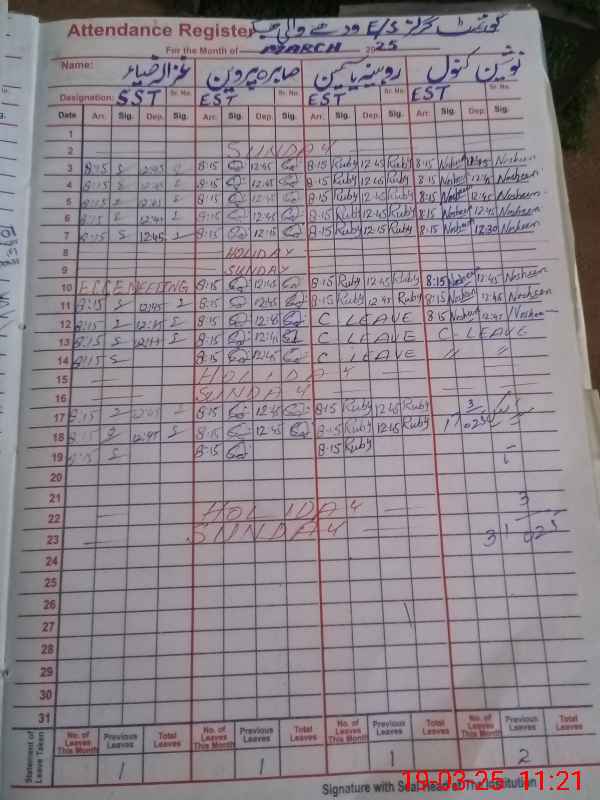 Attendance Register گورنمنٹ گرلز E/S
For the Month of MARCH 2025
Name: غزالہ ضیاء صابرہ پروین روبینہ یاسمین نوشین کنول
Designation: SST Sr. No. EST Sr. No. EST Sr. No. EST Sr. No.
Date Arr. Sig. Dep. Sig. Arr. Sig. Dep. Sig. Arr. Sig. Dep. Sig. Arr. Sig. Dep. Sig.
1
2 SUNDAY
3 8:15 12:45 8:15 12:45 8:15 Ruby 12:45 Ruby 8:15 Nosheen 12:45 Nosheen
4 8:15 12:45 8:15 12:45 8:15 Ruby 12:45 Ruby 8:15 Nosheen 12:45 Nosheen
5 8:15 12:45 8:15 12:45 8:15 Ruby 12:45 Ruby 8:15 Nosheen 12:45 Nosheen
6 8:15 12:45 8:15 12:45 8:15 Ruby 12:45 Ruby 8:15 Nosheen 12:45 Nosheen
7 8:15 12:45 8:15 12:15 8:15 Ruby 12:15 Ruby 8:15 Nosheen 12:30 Nosheen
8 HOLIDAY
9 SUNDAY
10 8:15 12:45 8:15 Ruby 12:45 Ruby 8:15 Nosheen 12:45 Nosheen
11 8:15 12:45 8:15 12:45 8:15 Ruby 12:45 Ruby 8:15 Nosheen 12:45 Nosheen
12 8:15 12:45 8:15 12:45 C LEAVE 8:15 Nosheen 12:45 Nosheen
13 8:15 12:45 8:15 12:45 C LEAVE C-LEAVE
14 8:15 8:15 12:45 C LEAVE " "
15 HOLIDAY
16 SUNDAY
17 8:15 12:45 8:15 12:45 8:15 Ruby 12:45 Ruby
18 8:15 12:45 8:15 12:45 8:15 Ruby 12:45 Ruby
19 8:15 8:15 8:15 Ruby
20
21
22 HOLIDAY
23 SUNDAY
24
25
26
27
28
29
30
31
Statement of Leave Taken
No. of Leaves This Month Previous Leaves Total Leaves No. of Leaves This Month Previous Leaves Total Leaves No. of Leaves This Month Previous Leaves Total Leaves No. of Leaves This Month Previous Leaves Total Leaves
1 1 1 2
Signature with Seal Head of the Institution
19-03-25 11:21